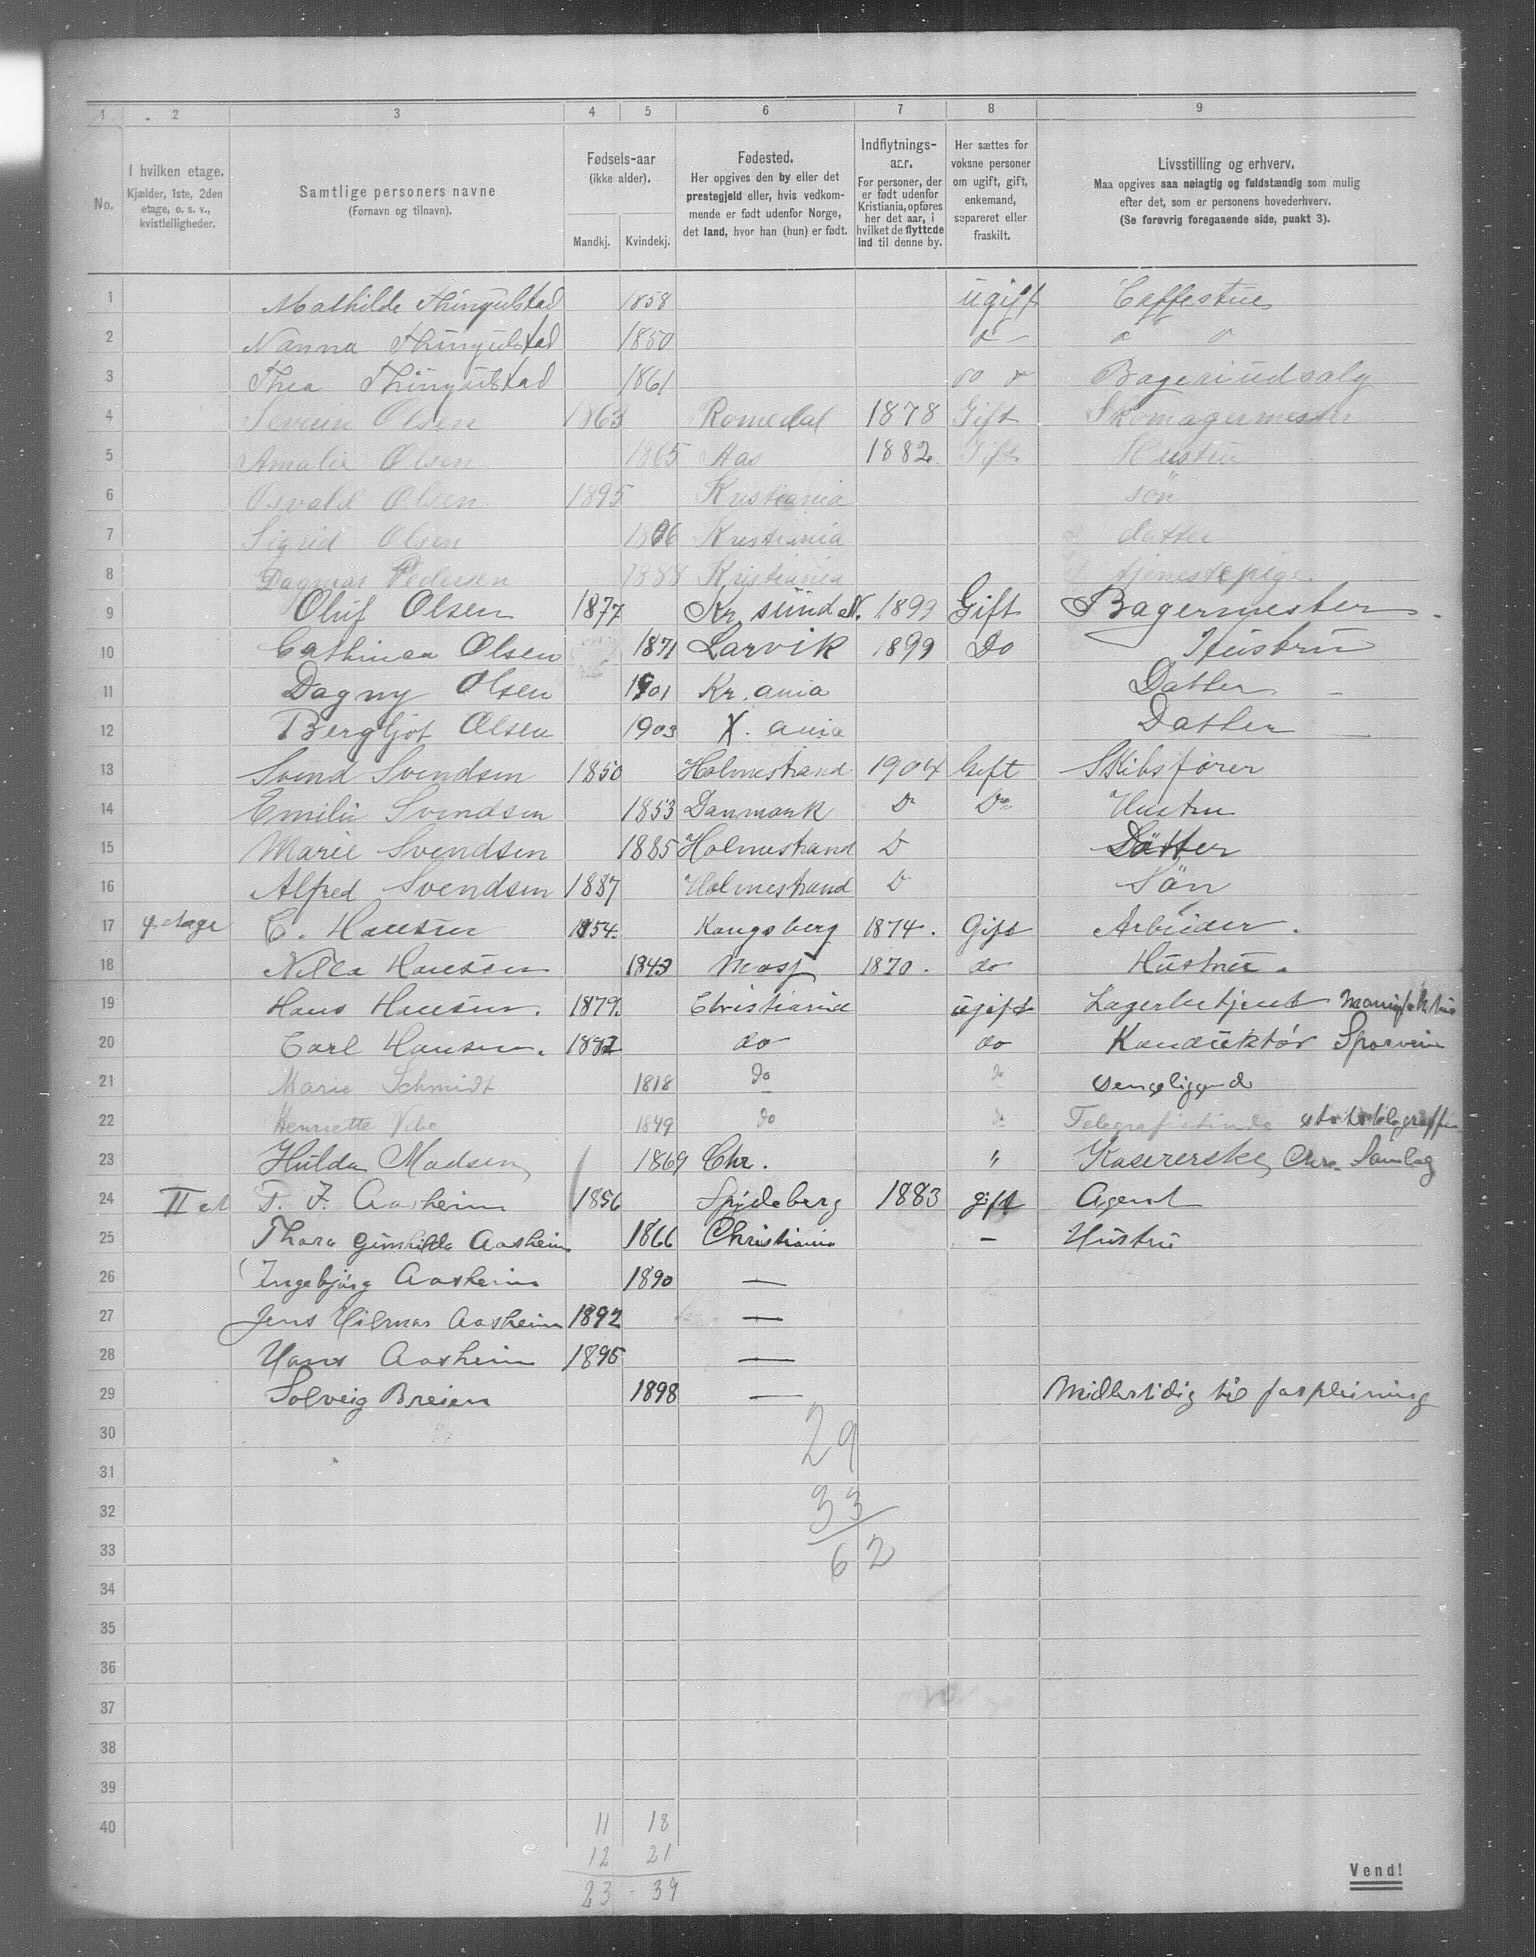 1 2 3 4 5 6 7 8 9
No.
I hvilken etage.
Kjælder, 1ste, 2den
etage, o. s. v.,
kvistleiligheder.
Samtlige personers navne
(Fornavn og tilnavn).
Fødsels-aar
(ikke alder).
Mandkj. Kvindekj.
Fødested.
Her opgives den by eller det
prestegjeld eller, hvis vedkom-
mende er født udenfor Norge,
det land, hvor han (hun) er født.
Indflytnings-
aar.
For personer, der
er født udenfor
Kristiania, opføres
her det aar, i
hvilket de flyttede
ind til denne by.
Her sættes for
voksne personer
om ugift, gift,
enkemand,
separeret eller
fraskilt.
Livsstilling og erhverv.
Maa opgives saa nøiagtig og fuldstændig som mulig
efter det, som er personens hovederhverv.
(Se forøvrig foregaaende side, punkt 3).
1 Mathilde Thingulstad 1858 ugift Caffestue
2 Nanna Thingulstad 1850
3 Thea Thingulstad 1861 Bageriudsalg
4 Severin Olsen 1863 Romedal 1878 Gift Skomagermester
5 Amalie Olsen 1865 Aas 1882 Gift Hustru
6 Osvald Olsen 1895 Kristiania søn
7 Sigrid Olsen Kristiania datter
8 Dagmar Pedersen 1888 Kristiania tjenestepige
9 Oluf Olsen 1877 Kr. sund N. 1899 Gift Bagermester
10 Cathinca Olsen 1871 Larvik 1899 Do Hustru
11 Dagny Olsen 1901 Kr. ania Datter
12 Bergljot Olsen 1903 X. ania Datter
13 Svend Svendsen 1850 Holmestrand 1904 Gift Skibsfører
14 Emilie Svendsen 1853 Danmark Do Do Hustru
15 Marie Svendsen 1885 Holmestrand D Datter
16 Alfred Svendsen 1887 Holmestrand D Søn
17 4 etage C. Hansen 1854. Kongsberg 1874. Gift Arbeider.
18 Nilla Hansen 1843 Moss 1870. do Hustru.
19 Hans Hansen. 1879. Christiania ugift Lagerbetjent
20 Carl Hansen. 1882 do do Konduktør Sporvein
21 Marie Schmidt 1818 do do sengeliggende
22 Henriette Vibe 1849 do do Telegrafistinde
23 Hulda Madsen 1869 Chr. " Kasererske, Chra. Samlag
24 II et P. J. Aasheim 1856 Spydeberg 1883 gift Agent
25 Thora Gunhilda Aasheim 1866 Christiania — Hustru
26 Ingebjørg Aasheim 1890 —
27 Jens Hilmar Aasheim 1892 —
28 Hans Aasheim 1895 —
29 Solveig Breien 1898 — Midlertidig til forpleining
30
31
32
33
34
35
36
37
38
39
40
29
33
62
11 18
12 21
23 - 39
Vend!